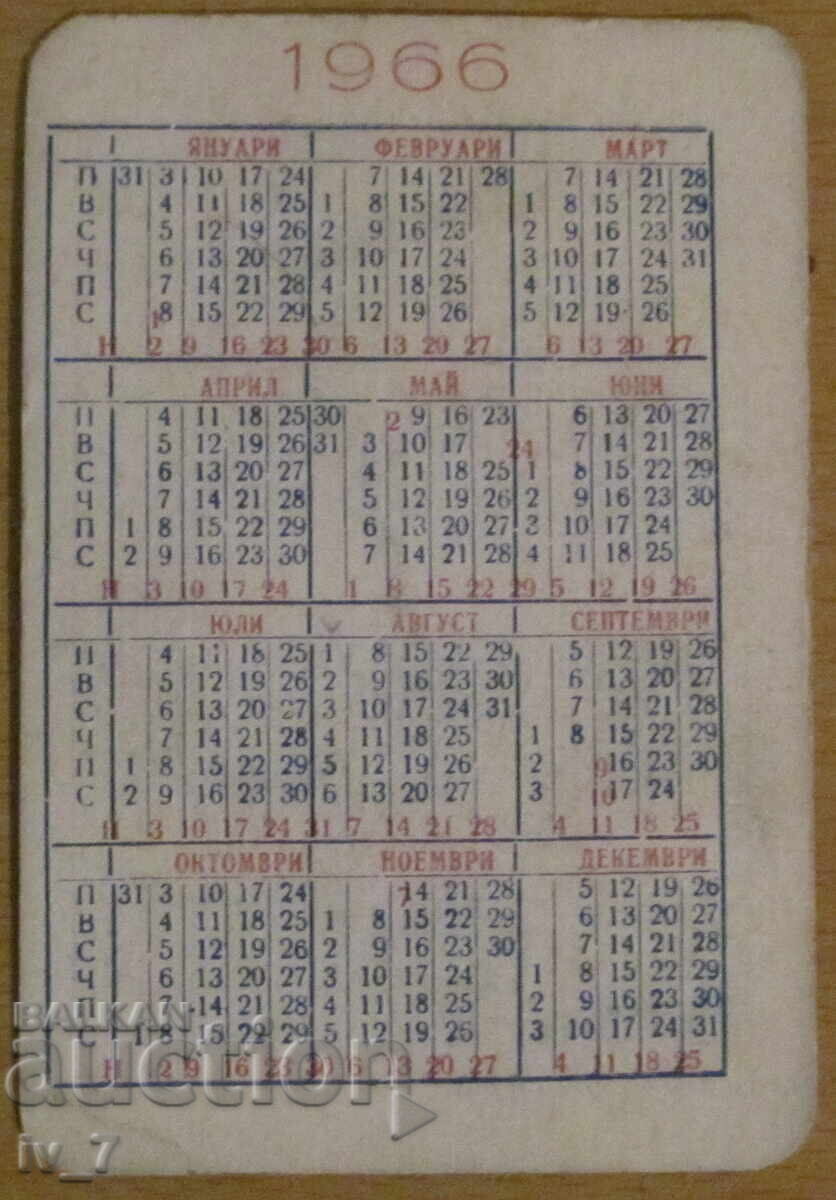 1966
ЯНУАРИ ФЕВРУАРИ МАРТ
П 31 3 10 17 24 7 14 21 28 7 14 21 28
В 4 11 18 25 1 8 15 22 1 8 15 22 29
С 5 12 19 26 2 9 16 23 2 9 16 23 30
Ч 6 13 20 27 3 10 17 24 3 10 17 24 31
П 7 14 21 28 4 11 18 25 4 11 18 25
С 1 8 15 22 29 5 12 19 26 5 12 19 26
Н 2 9 16 23 30 6 13 20 27 6 13 20 27
АПРИЛ МАЙ ЮНИ
П 4 11 18 25 30 2 9 16 23 6 13 20 27
В 5 12 19 26 31 3 10 17 24 7 14 21 28
С 6 13 20 27 4 11 18 25 1 8 15 22 29
Ч 7 14 21 28 5 12 19 26 2 9 16 23 30
П 1 8 15 22 29 6 13 20 27 3 10 17 24
С 2 9 16 23 30 7 14 21 28 4 11 18 25
Н 3 10 17 24 1 8 15 22 29 5 12 19 26
ЮЛИ АВГУСТ СЕПТЕМВРИ
П 4 11 18 25 1 8 15 22 29 5 12 19 26
В 5 12 19 26 2 9 16 23 30 6 13 20 27
С 6 13 20 27 3 10 17 24 31 7 14 21 28
Ч 7 14 21 28 4 11 18 25 1 8 15 22 29
П 1 8 15 22 29 5 12 19 26 2 9 16 23 30
С 2 9 16 23 30 6 13 20 27 3 10 17 24
Н 3 10 17 24 31 7 14 21 28 4 11 18 25
ОКТОМВРИ НОЕМВРИ ДЕКЕМВРИ
П 31 3 10 17 24 7 14 21 28 5 12 19 26
В 4 11 18 25 1 8 15 22 29 6 13 20 27
С 5 12 19 26 2 9 16 23 30 7 14 21 28
Ч 6 13 20 27 3 10 17 24 1 8 15 22 29
П 7 14 21 28 4 11 18 25 2 9 16 23 30
С 1 8 15 22 29 5 12 19 26 3 10 17 24 31
Н 2 9 16 23 30 6 13 20 27 4 11 18 25
BALKAN
auction
iv_7